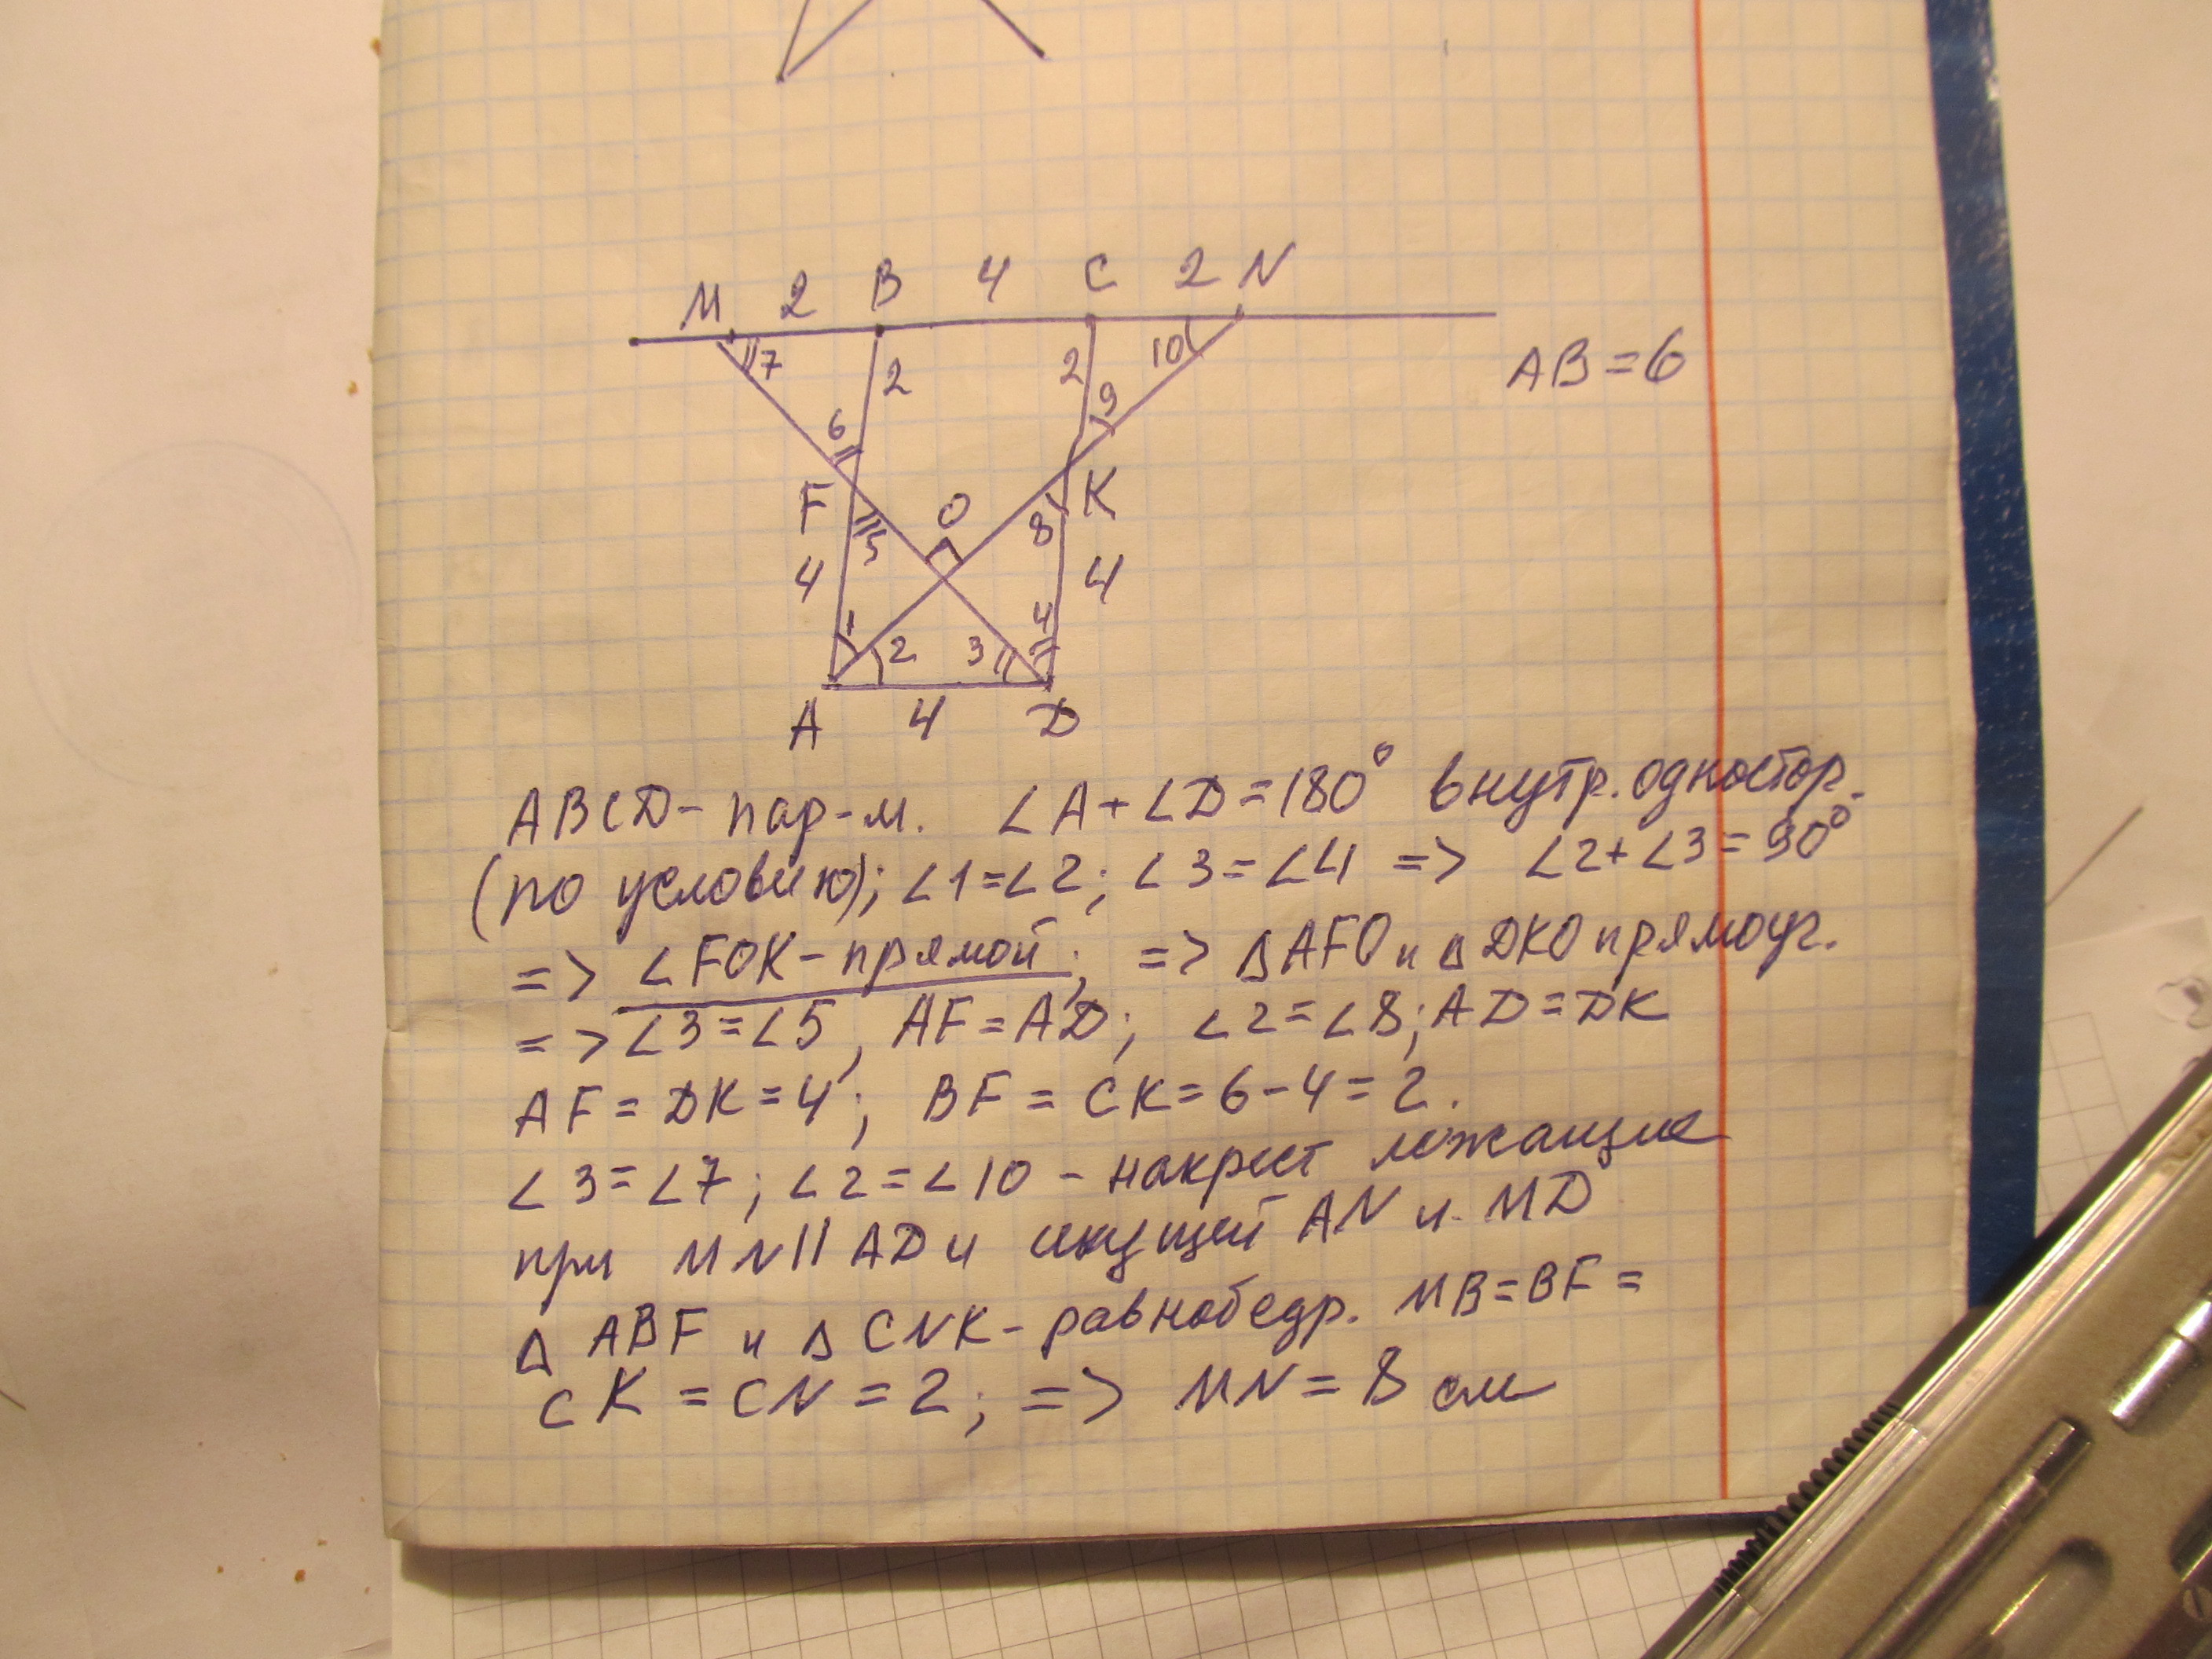 M 2 B 4 C 2 N
7 2 2 10
AB = 6
6 9
F O K
5 8
4 4
1 2 3 4
A 4 D
ABCD - пар-м. ∠A + ∠D = 180° внутр. одностор.
(по условию); ∠1 = ∠2; ∠3 = ∠4 => ∠2 + ∠3 = 90°
=> ∠FOK - прямой; => ΔAFO и ΔDKO прямоуг.
=> ∠3 = ∠5, AF = AD; ∠2 = ∠8; AD = DK
AF = DK = 4; BF = CK = 6 - 4 = 2.
∠3 = ∠7; ∠2 = ∠10 - накрест лежащие
при MN || AD и секущей AN и MD
Δ ABF и Δ CNK - равнобедр. MB = BF =
CK = CN = 2; => MN = 8 см